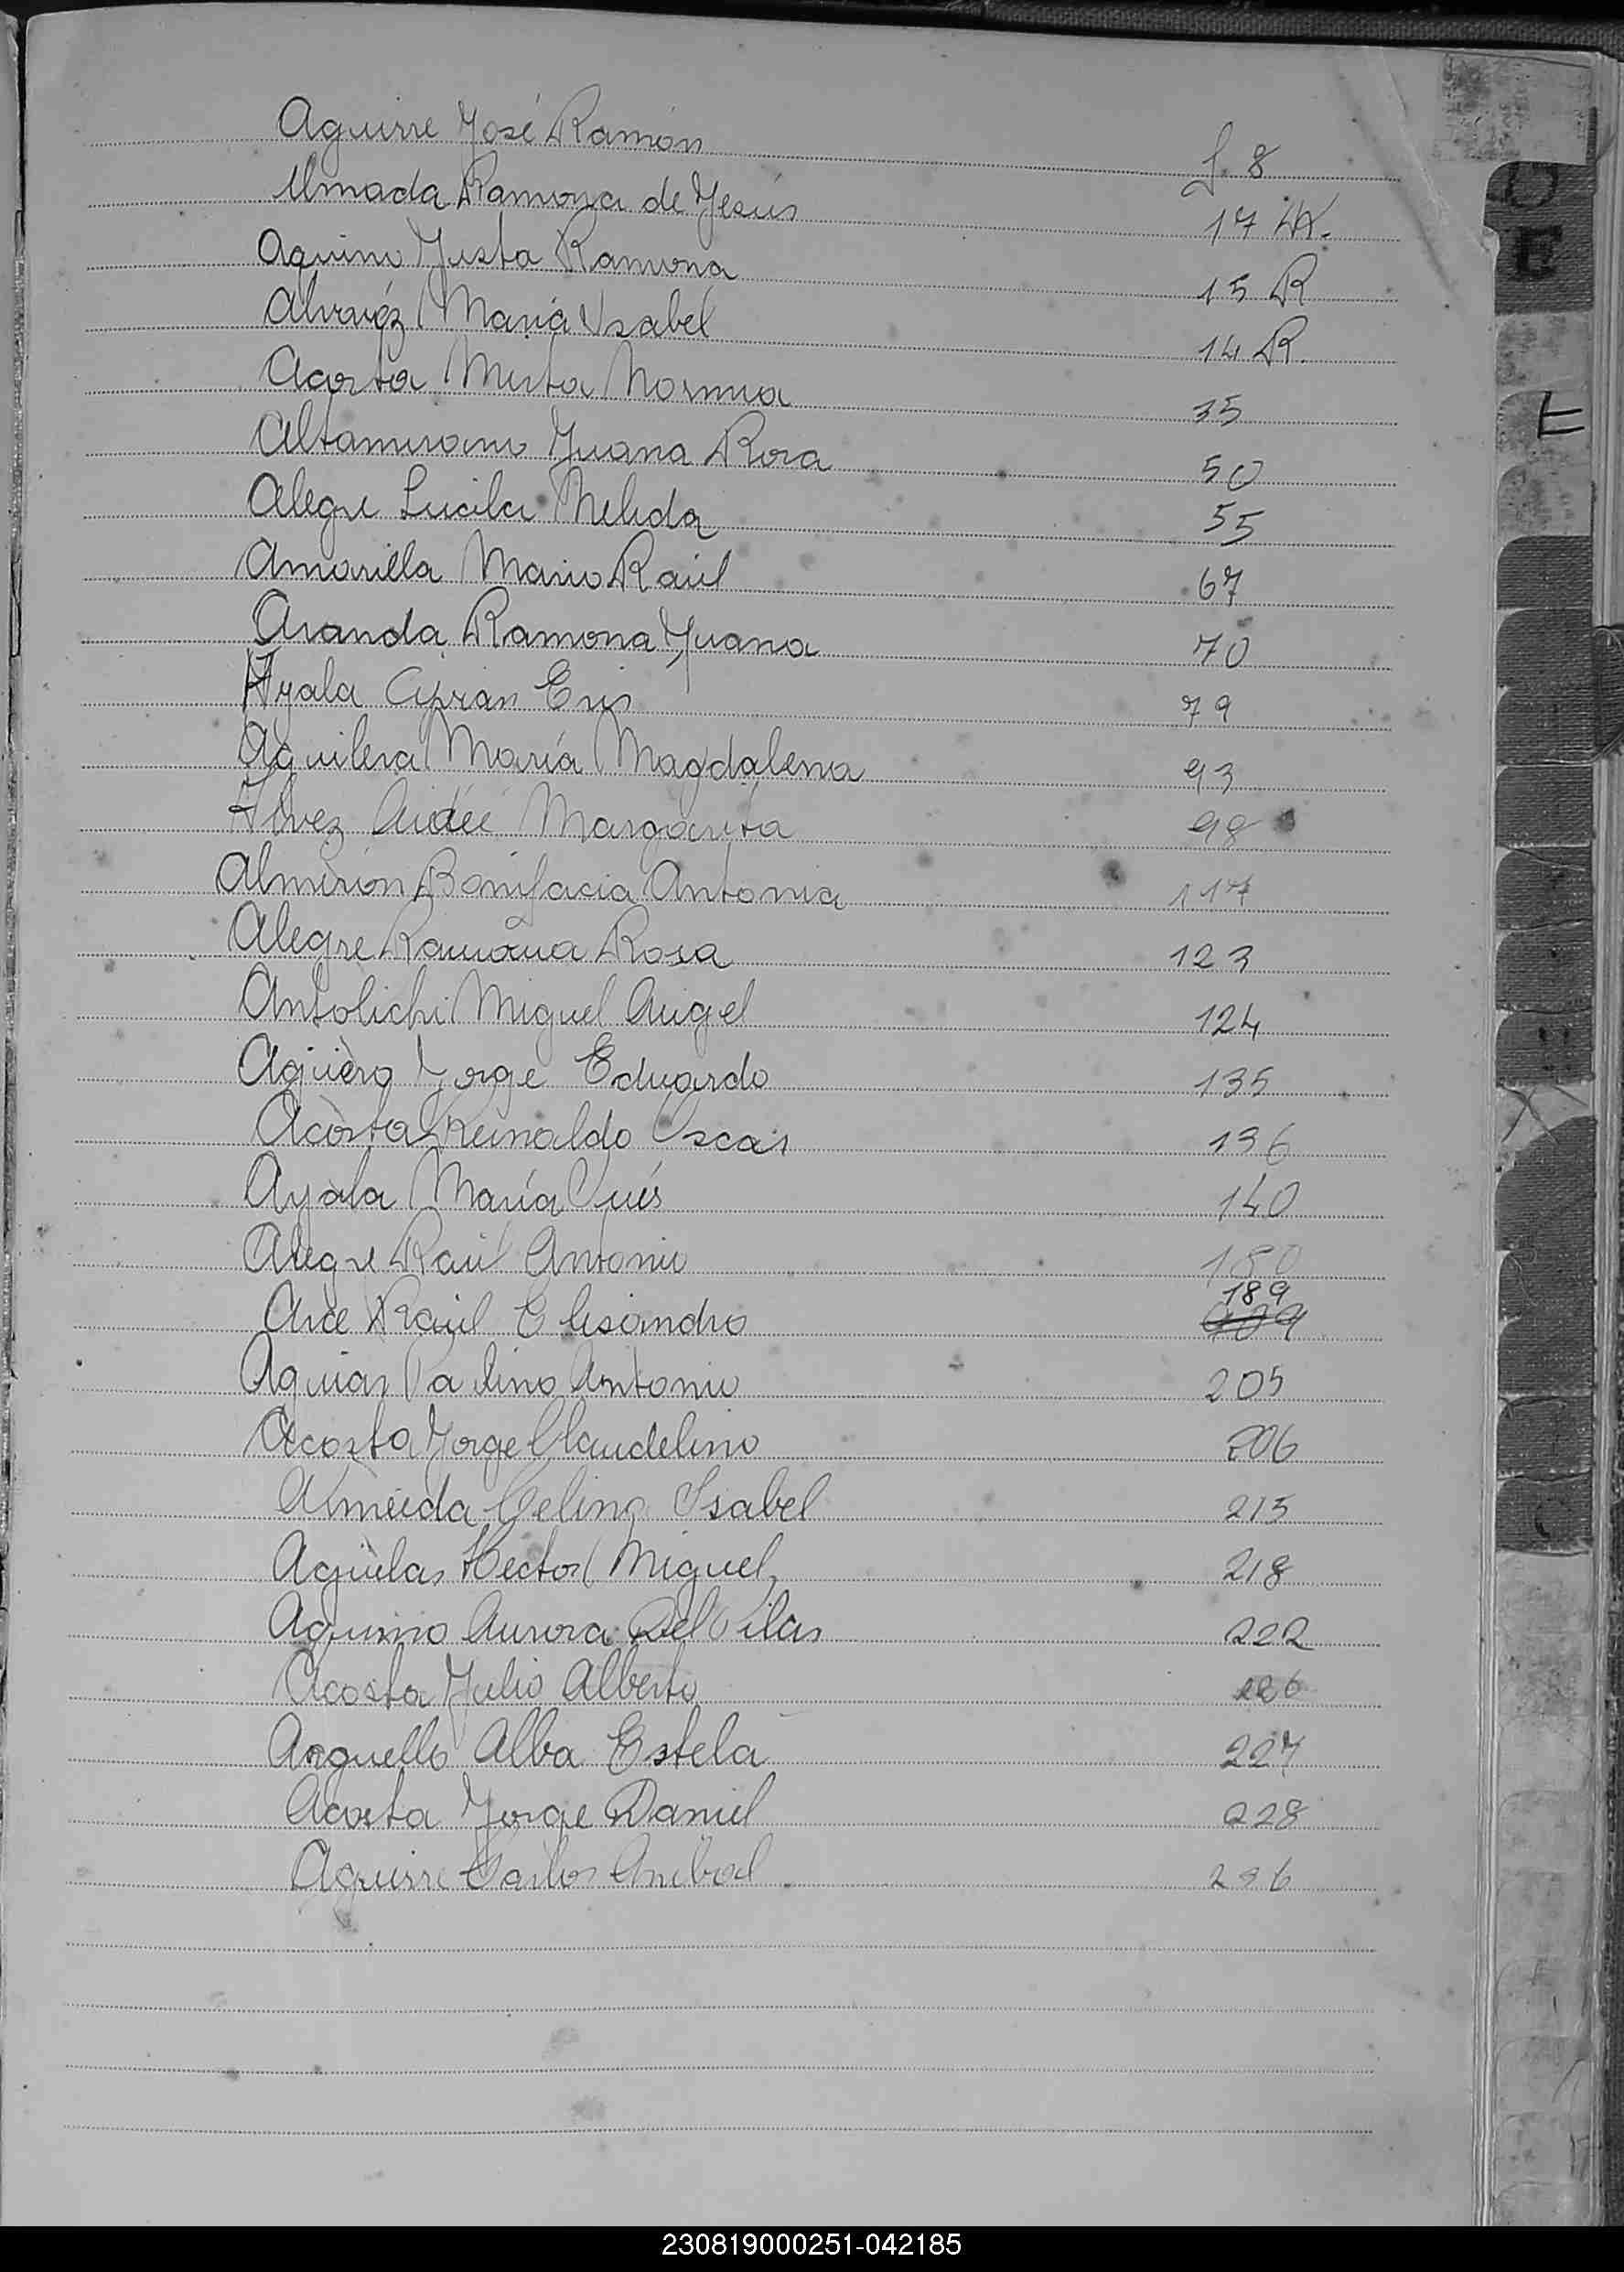 Aguirre José Ramón f. 8
Almada Ramona de Jesús 17 R.
Aquino Justa Ramona 15 R
Alvaréz María Isabel 14 R.
Acosta Mirta Norma 35
Altamirano Juana Rosa 50
Alegre Lucila Nelida 55
Amarilla Mario Raúl 67
Aranda Ramona Juana 70
Ayala Ciprian Eris 79
Aguilera María Magdalena 93
Alvez Aidée Margarita 98
Almirón Bonifacia Antonia 117
Alegre Ramona Rosa 123
Antolichi Miguel Angel 124
Agüero Jorge Eduardo 135
Acosta Reinaldo Oscar 136
Ayala María Inés 140
Alegre Raúl Antonio 180
189
Arce Raúl Elisandro
Aguiar Paulino Antonio 205
Acosta Jorge Claudelino 206
Almeida Celina Isabel 215
Agüelas Hector Miguel 218
Aquino Aurora Del Pilar 222
Acosta Julio Alberto 226
Arguello Alba Estela 227
Acosta Jorge Daniel 228
Aguirre Carlos Anibal 236
E
E
230819000251-042185